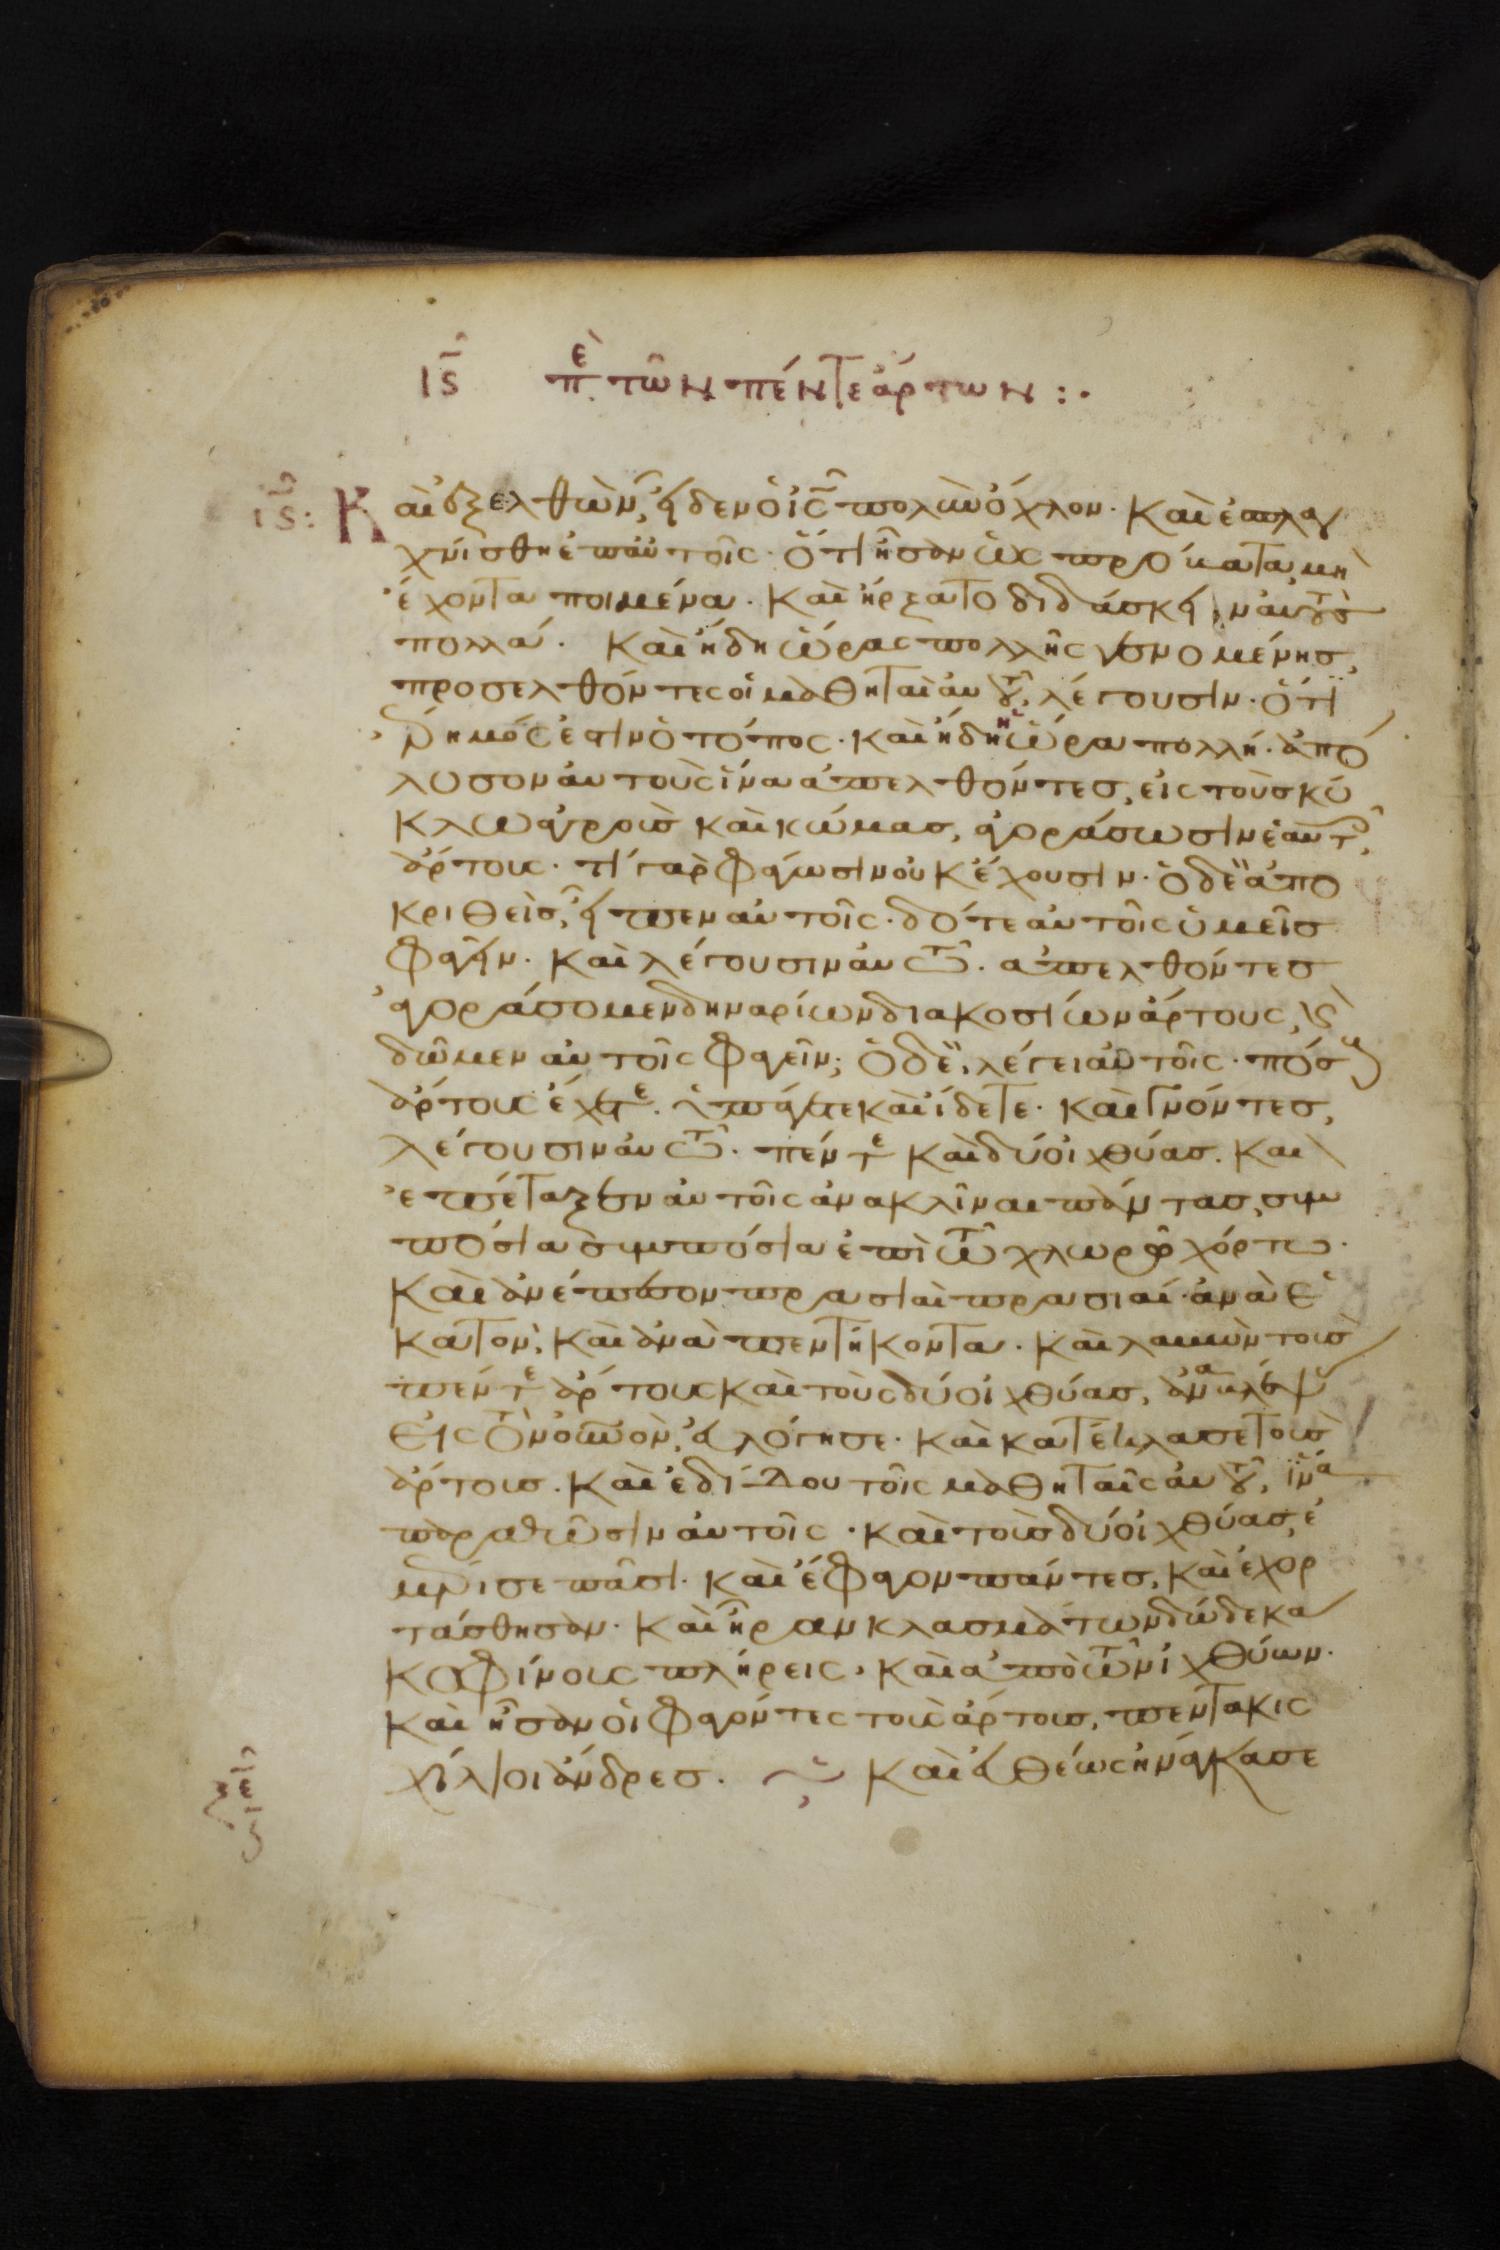 ις̅ πὲ τῶν πέντε ἄρτων :·
ις̅: Καὶ ἐξελθὼν, εἶδεν ὁ ις̅ πολὺν ὄχλον· καὶ ἐσπλαγ
χνίσθη ἐπ αὐτοῖς· ὅτι ἦσαν ὡς πρόβατα, μὴ
ἔχοντα ποιμένα. καὶ ἤρξατο διδάσκειν αὐτοὺς
πολλά. καὶ ἤδη ὥρας πολλῆς γενομένης,
προσελθόντες οἱ μαθηταὶ αὐτοῦ, λέγουσιν· ὅτι
ἔρημός ἐστιν ὁ τόπος· καὶ ἤδη ἡ ὥρα πολλή· ἀπό
λυσον αὐτοὺς ἵνα ἀπελθόντες, εἰς τοὺς κύ
κλω ἀγροὺς καὶ κώμας, ἀγοράσωσιν ἑαυτοῖς
ἄρτους· τί γὰρ φάγωσιν οὐκ ἔχουσιν· ὁ δὲ ἀπο
κριθεὶς, εἶπεν αὐτοῖς· δότε αὐτοῖς ὑμεῖς
φαγεῖν. καὶ λέγουσιν αὐτῶ. ἀπελθόντες
ἀγοράσομεν δηναρίων διακοσίων ἄρτους, καὶ
δῶμεν αὐτοῖς φαγεῖν; ὁ δὲ, λέγει αὐτοῖς· πόσους
ἄρτους ἔχετε. ὑπάγετε καὶ ἴδετε· καὶ γνόντες,
λέγουσιν αὐτῶ· πέντε καὶ δύο ἰχθύας. καὶ
ἐπέταξεν αὐτοῖς ἀνακλῖναι πάντας, συμ
πόσια συμπόσια ἐπὶ τῶ χλωρῶ χόρτω·
καὶ ἀνέπεσον πρασιαὶ πρασιαί· ἀνὰ ἑ
κατον, καὶ ἀνὰ πεντήκοντα. καὶ λαβὼν τοὺς
πέντε ἄρτους καὶ τοὺς δύο ἰχθύας, ἀναβλέψας
εἰς τὸν οὐνὸν, εὐλόγησε· καὶ κατέκλασε τοὺς
ἄρτους. καὶ ἐδίδου τοῖς μαθηταῖς αὐτοῦ, ἵνα
παραθῶσιν αὐτοῖς · καὶ τοὺς δύο ἰχθύας, ἐ
μέρισε πᾶσι. καὶ ἔφαγον πάντες, καὶ ἐχορ
τάσθησαν. καὶ ἦραν κλασμάτων δώδεκα
κοφίνους πλήρεις, καὶ ἀπὸ τῶν ἰχθύων.
καὶ ἦσαν οἱ φαγόντες τοὺς ἄρτους, πεντακις
χίλιοι ἄνδρες. καὶ εὐθέως ἠνάγκασε